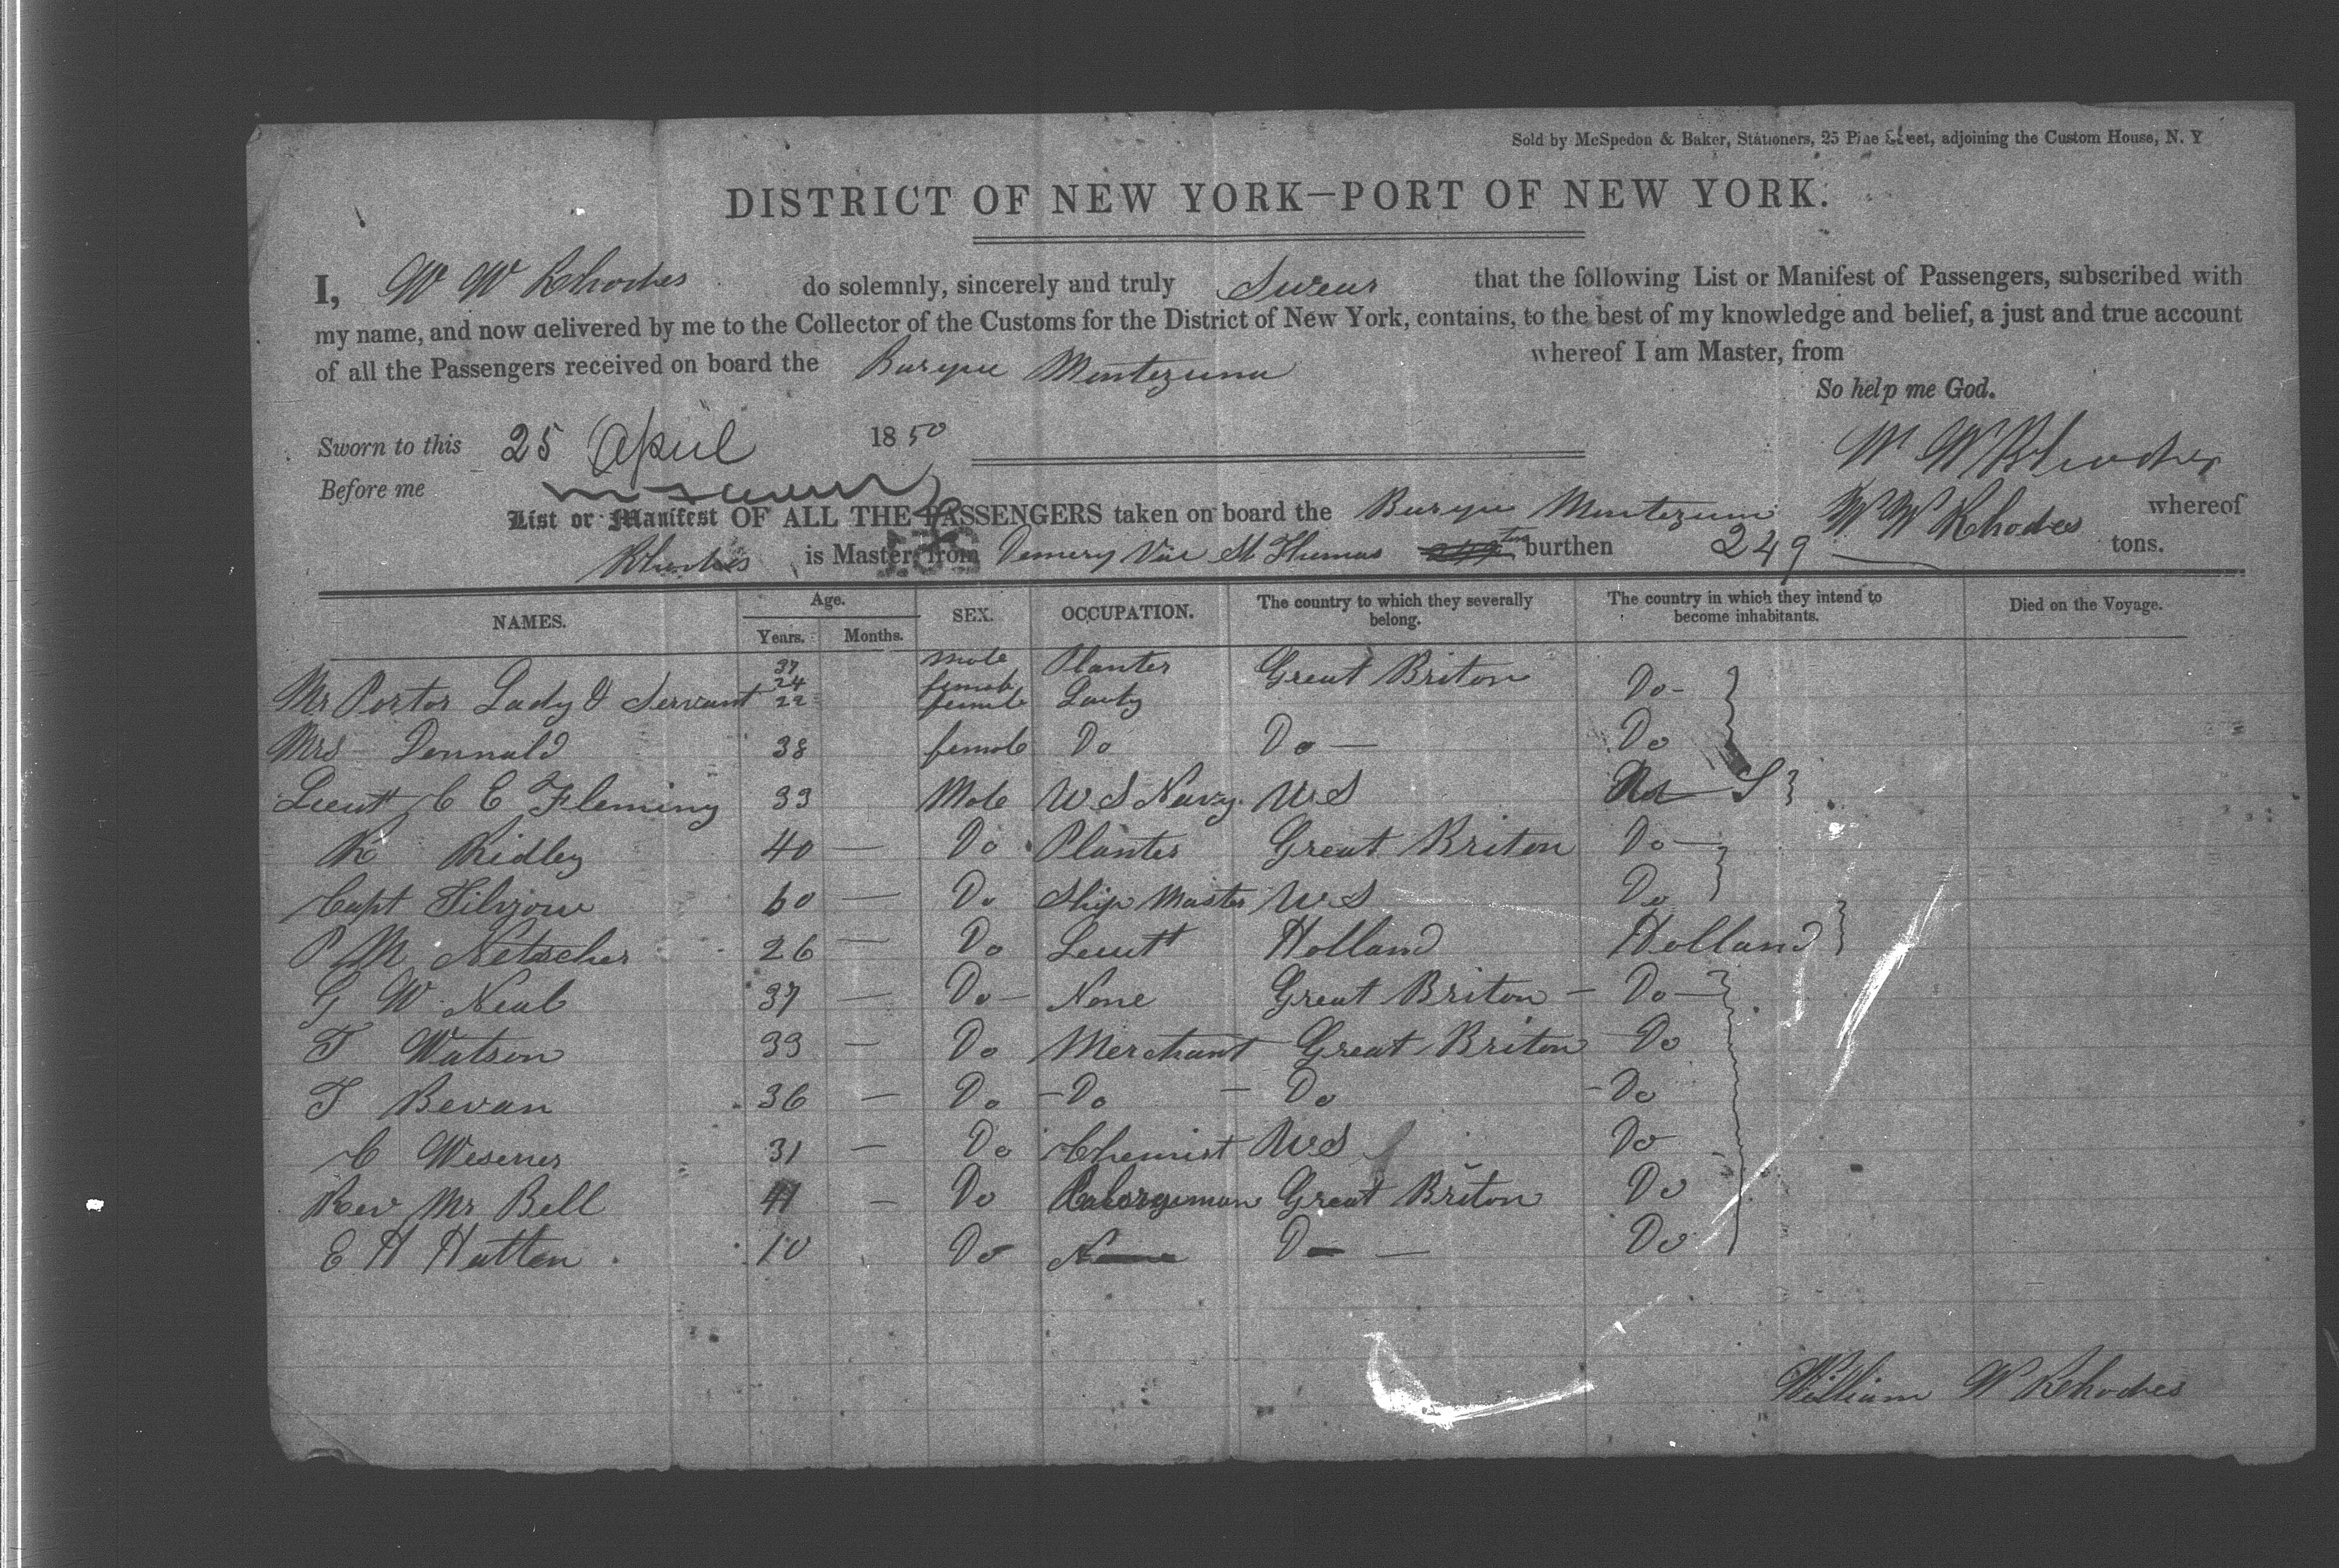 Sold by McSpedon & Baker, Stationers, 25 Pine Street, adjoining the Custom House, N. Y
DISTRICT OF NEW YORK—PORT OF NEW YORK.
I, W W Rhodes do solemnly, sincerely and truly Swear that the following List or Manifest of Passengers, subscribed with
my name, and now delivered by me to the Collector of the Customs for the District of New York, contains, to the best of my knowledge and belief, a just and true account
of all the Passengers received on board the Barque Montezuma whereof I am Master, from
So help me God.
Sworn to this 25 April 1850
W W Rhodes
Before me
List or Manifest OF ALL THE PASSENGERS taken on board the Barque Montezuma W W Rhodes whereof
Rhodes is Master, from Demery Via St Thumas burthen 249 tons.
NAMES. Age. Years. Months. SEX. OCCUPATION. The country to which they severally belong. The country in which they intend to become inhabitants. Died on the Voyage.
37 Male Planter
Mr Portor Lady & Servant 24 female Great Briton Do
22 female Lady
Mrs Donnald 38 female Do Do — Do
Lieutt C C Fleming 33 Male U S Navy U S S
R Ridley 40 — Do Planter Great Briton Do —
Capt 60 — Do Ship Master U S Do
P M Netscher 26 — Do Lieutt Holland Holland
G W Neal 37 — Do — None Great Briton — Do —
T Watson 33 — Do Merchant Great Briton Do
T Bevan 36 — Do — Do — Do — Do
C Wesener 31 — Do Chemist U S Do
Rev Mr Bell 41 — Do Great Briton Do
E H Hatten 10 Do None Do — Do
William W Rhodes